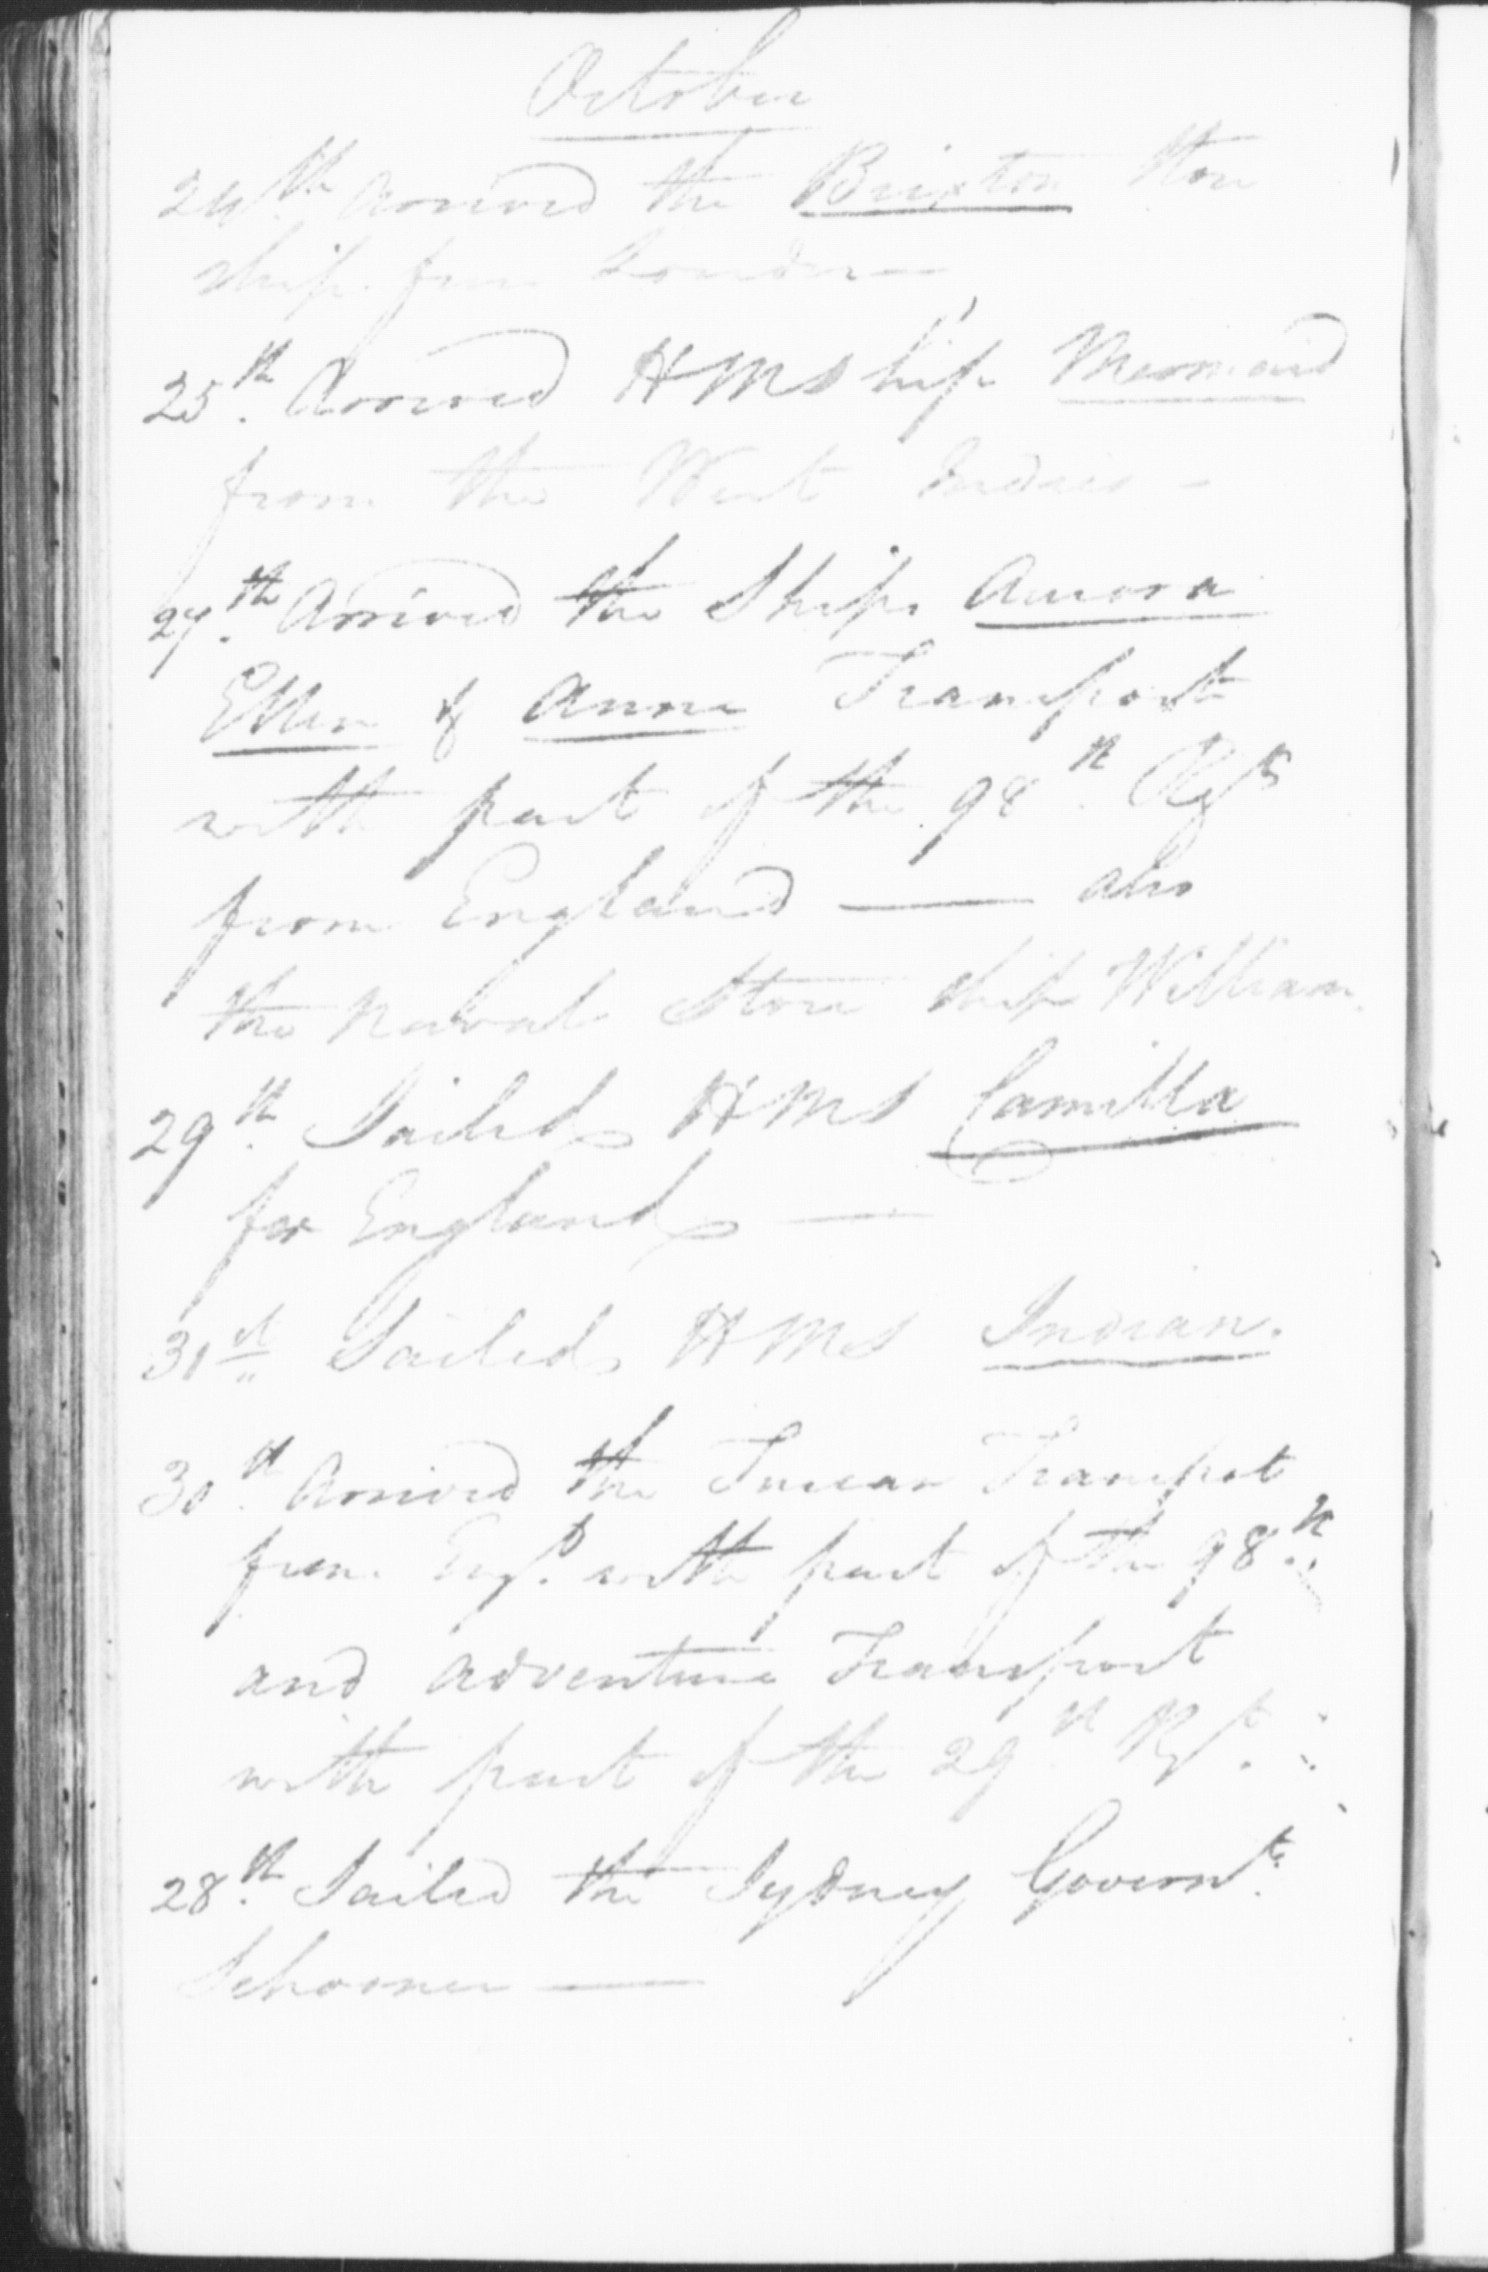 October
24th Arrived the Brixton Store
ship from London —
25th. Arrived HMShip Mermaid
from the West Indies -
27th. Arrived the Ship Aurora
Ellen & Anne Transports
with part of the 98th. Regt
from England — also
the Naval Store Ship William.
29th. Sailed HMS Camilla
for England —
31st Sailed HMS Indian.
30th. Arrived the Transport
from Engd. with part of the 98th.
and Adventure Transport
with part of the 29th Rgt.
28th. Sailed the Sydney Governt.
Schooner —